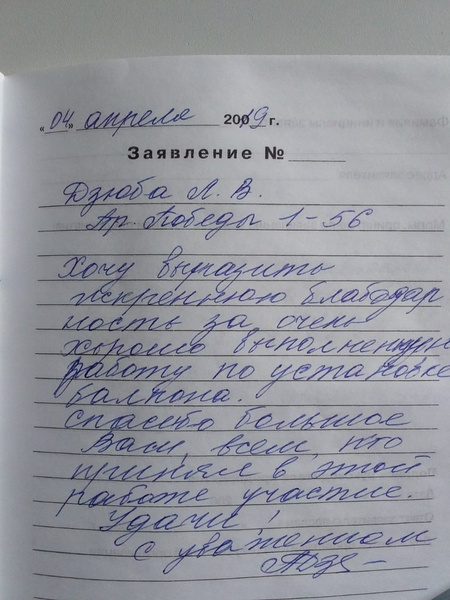 "04" апреля 2009 19 г.
Заявление №
Дзюба Л. В.
Пр. Победы 1-56
Хочу выразить
искреннюю благодар
ность за очень
хорошо выполненную
работу по установке
балкона.
Спасибо большое
Вам, всем, кто
принял в этой
работе участие.
Удачи!
С уважением